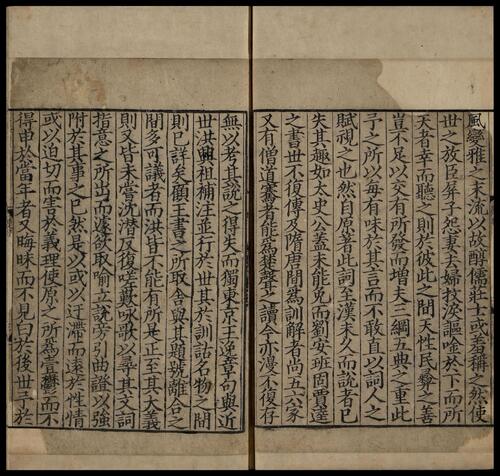 風變雅之末流以故醇儒莊士或羞稱之然使
世之放臣屏子怨妻去婦抆淚謳唫於下而所
天者幸而聽之則於彼此之間天性民彝之善
豈不足以交有所發而增夫三綱五典之重此
予之所以每有味於其言而不敢直以詞人之
賦視之也然自原著此詞至漢未久而說者已
失其趣如太史公蓋未能免而劉安班固賈逵
之書世不復傳及隋唐間為訓解者尚五六家
又有僧道騫者能為楚聲之讀今亦漫不復存
無以考其說之得失而獨東京王逸章句與近
世洪興祖補注並行於世其於訓詁名物之間
則已詳矣顧王書之所取舍與其題號離合之
間多可議者而洪皆不能有所是正至其大義
則又皆未嘗沈潛反復嗟歎咏歌以尋其文詞
指意之所出而遽欲取喻立說旁引曲證以強
附於其事之已然是以或以迂滯而遠於性情
或以迫切而害於義理使原之所為壹鬱而不
得申於當年者又晦昧而不見白於後世予於